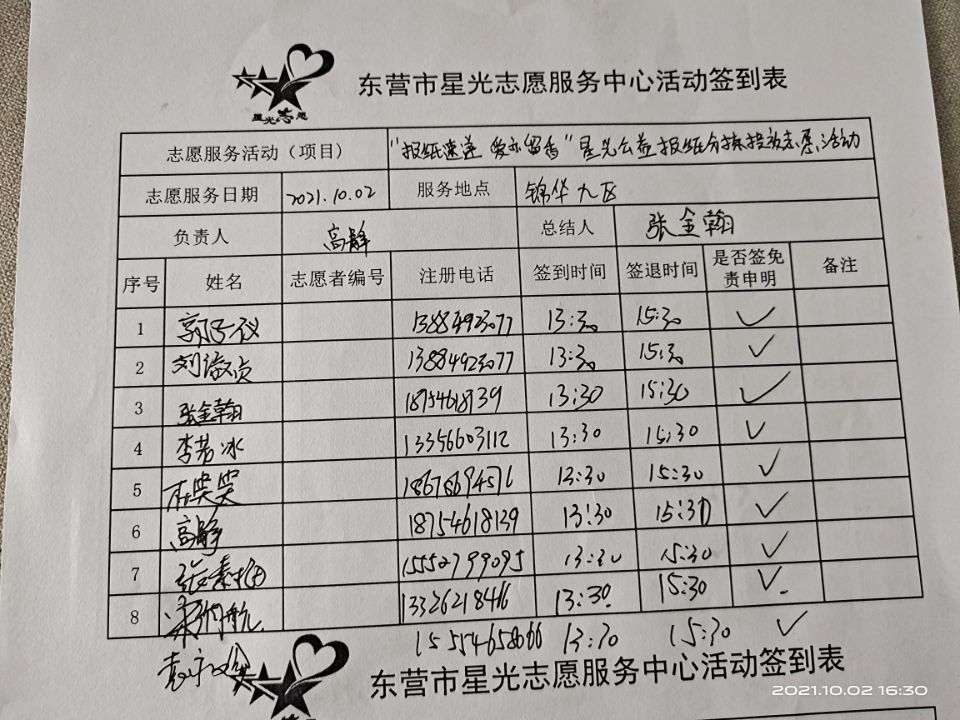 星光志愿
东营市星光志愿服务中心活动签到表
志愿服务活动（项目） "报纸速递 爱心留香"星光公益报纸分拣投放志愿活动
志愿服务日期 2021.10.02 服务地点 锦华九区
负责人 高静 总结人 张金翰
序号 姓名 志愿者编号 注册电话 签到时间 签退时间 是否签免责申明 备注
1 郭子仪 13884923077 13:30 15:30 ✓
2 刘淑贞 13884923077 13:30 15:30 ✓
3 张金翰 18754618739 13:30 15:30 ✓
4 李若冰 13356603112 13:30 15:30 ✓
5 18678694576 13:30 15:30 ✓
6 高静 18754618139 13:30 15:30 ✓
7 15552799095 13:30 15:30 ✓
8 13326218416 13:30 15:30 ✓
15554658666 13:30 15:30 ✓
东营市星光志愿服务中心活动签到表
2021.10.02 16:30